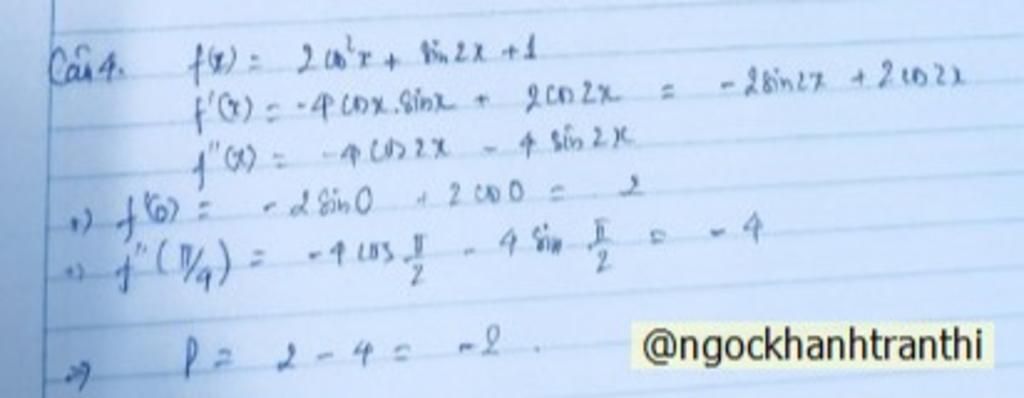 Câu 4. f(x) = 2cos²x + sin2x + 1
f'(x) = -4cosx.sinx + 2cos2x = -2sin2x + 2cos2x
f''(x) = -4cos2x - 4sin2x
+) f'(0) = -2sin0 + 2cos0 = 2
+) f''(π/4) = -4cos π/2 - 4sin π/2 = -4
=> P = 2 - 4 = -2.
@ngockhanhtranthi